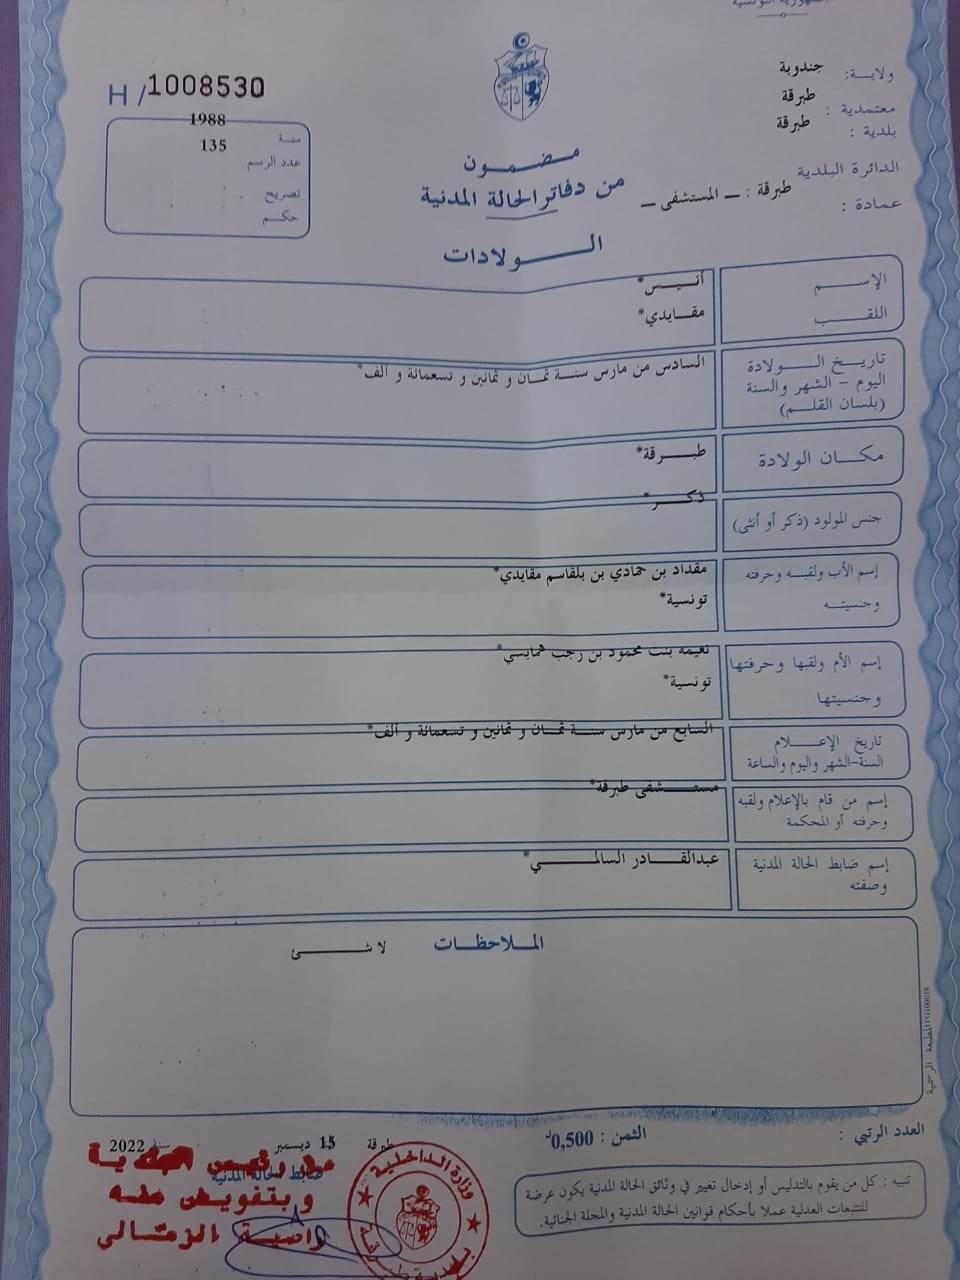 ولاية: جندوبة
معتمدية : طبرقة
بلدية : طبرقة
الدائرة البلدية
طبرقة : ـ المستشفى ـ
عمادة :
H / 1008530
سنة 1988
عدد الرسم 135
تصريح
حكم
مضمون
من دفاتر الحالة المدنية
الولادات
الإسم أنيس*
اللقب مقايدي*
تاريخ الولادة
اليوم - الشهر والسنة
(بلسان القلم)
السادس من مارس سنة ثمان و ثمانين و تسعمائة و ألف*
مكان الولادة طبرقة*
جنس المولود (ذكر أو أنثى) ذكر*
إسم الأب ولقبه وحرفته مقداد بن حمادي بن بلقاسم مقايدي*
وجنسيته تونسية*
إسم الأم ولقبها وحرفتها نعيمة بنت محمود بن رجب همايسي*
وجنسيتها تونسية*
تاريخ الإعلام
السنة-الشهر واليوم والساعة
السابع من مارس سنة ثمان و ثمانين و تسعمائة و ألف*
إسم من قام بالإعلام ولقبه
وحرفته أو المحكمة
مستشفى طبرقة*
إسم ضابط الحالة المدنية
وصفته
عبدالقادر السالمي*
الملاحظات
لا شئ
المطبعة الرسمية
العدد الرتبي :
الثمن : 0,500د
طبرقة 15 ديسمبر سنة 2022
ضابط الحالة المدنية
وبتفويض منه
وزارة الداخلية
تنبيه : كل من يقوم بالتدليس أو إدخال تغيير في وثائق الحالة المدنية يكون عرضة
للتتبعات العدلية عملا بأحكام قوانين الحالة المدنية والمجلة الجنائية.